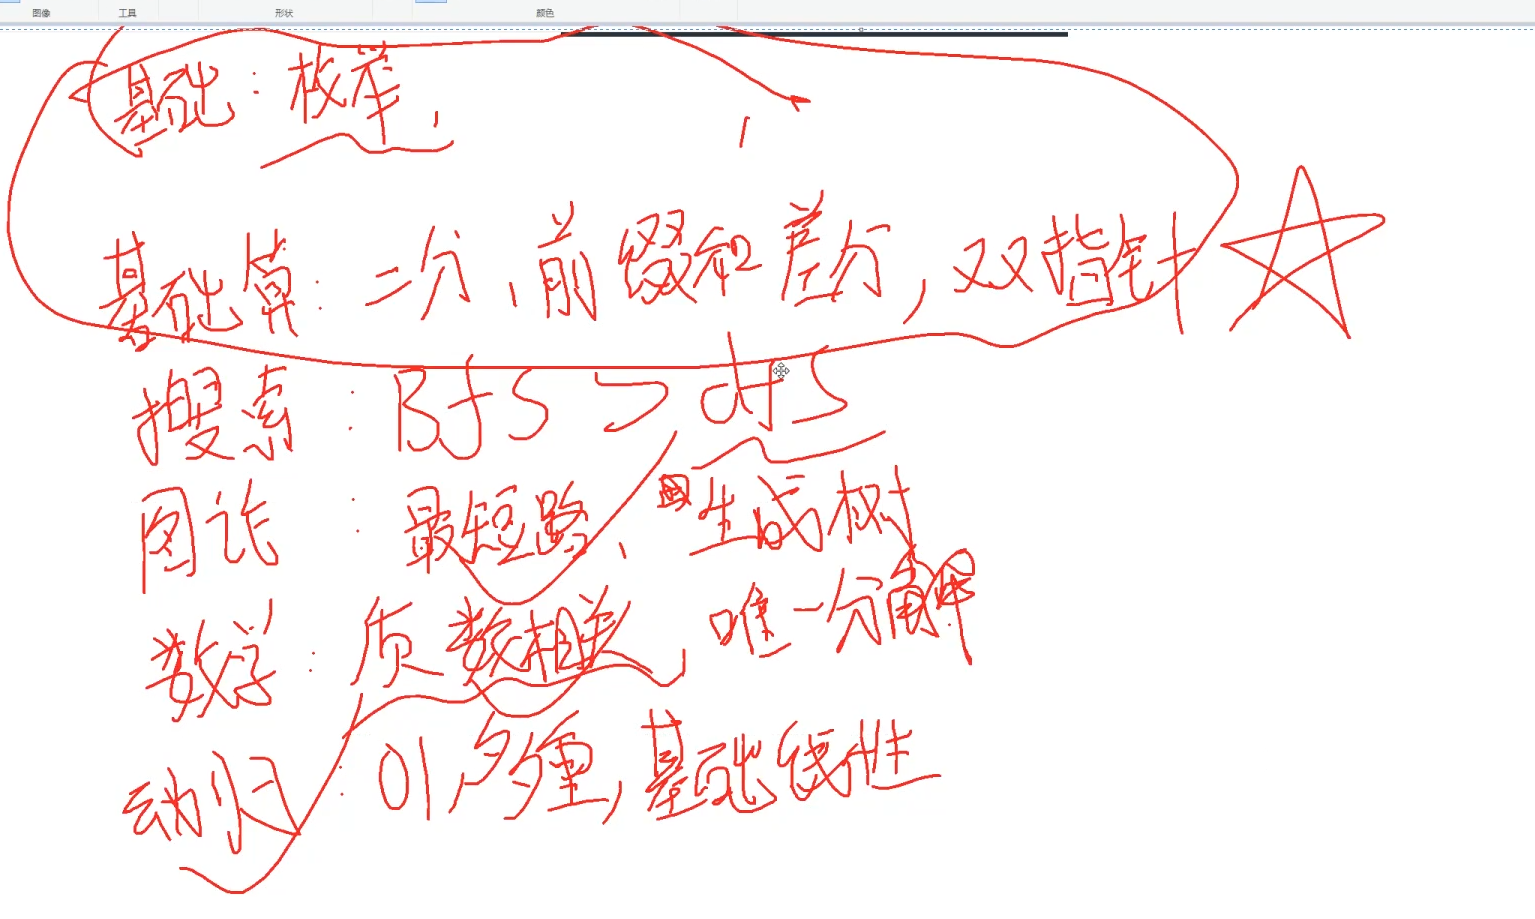 图像 工具 形状 颜色
基础：枚举，
基础算：二分、前缀和差分，双指针
搜索：Bfs > dfs
图论：最短路、生成树
数学：质数相关，唯一分解
动归：01，多重，基础线性